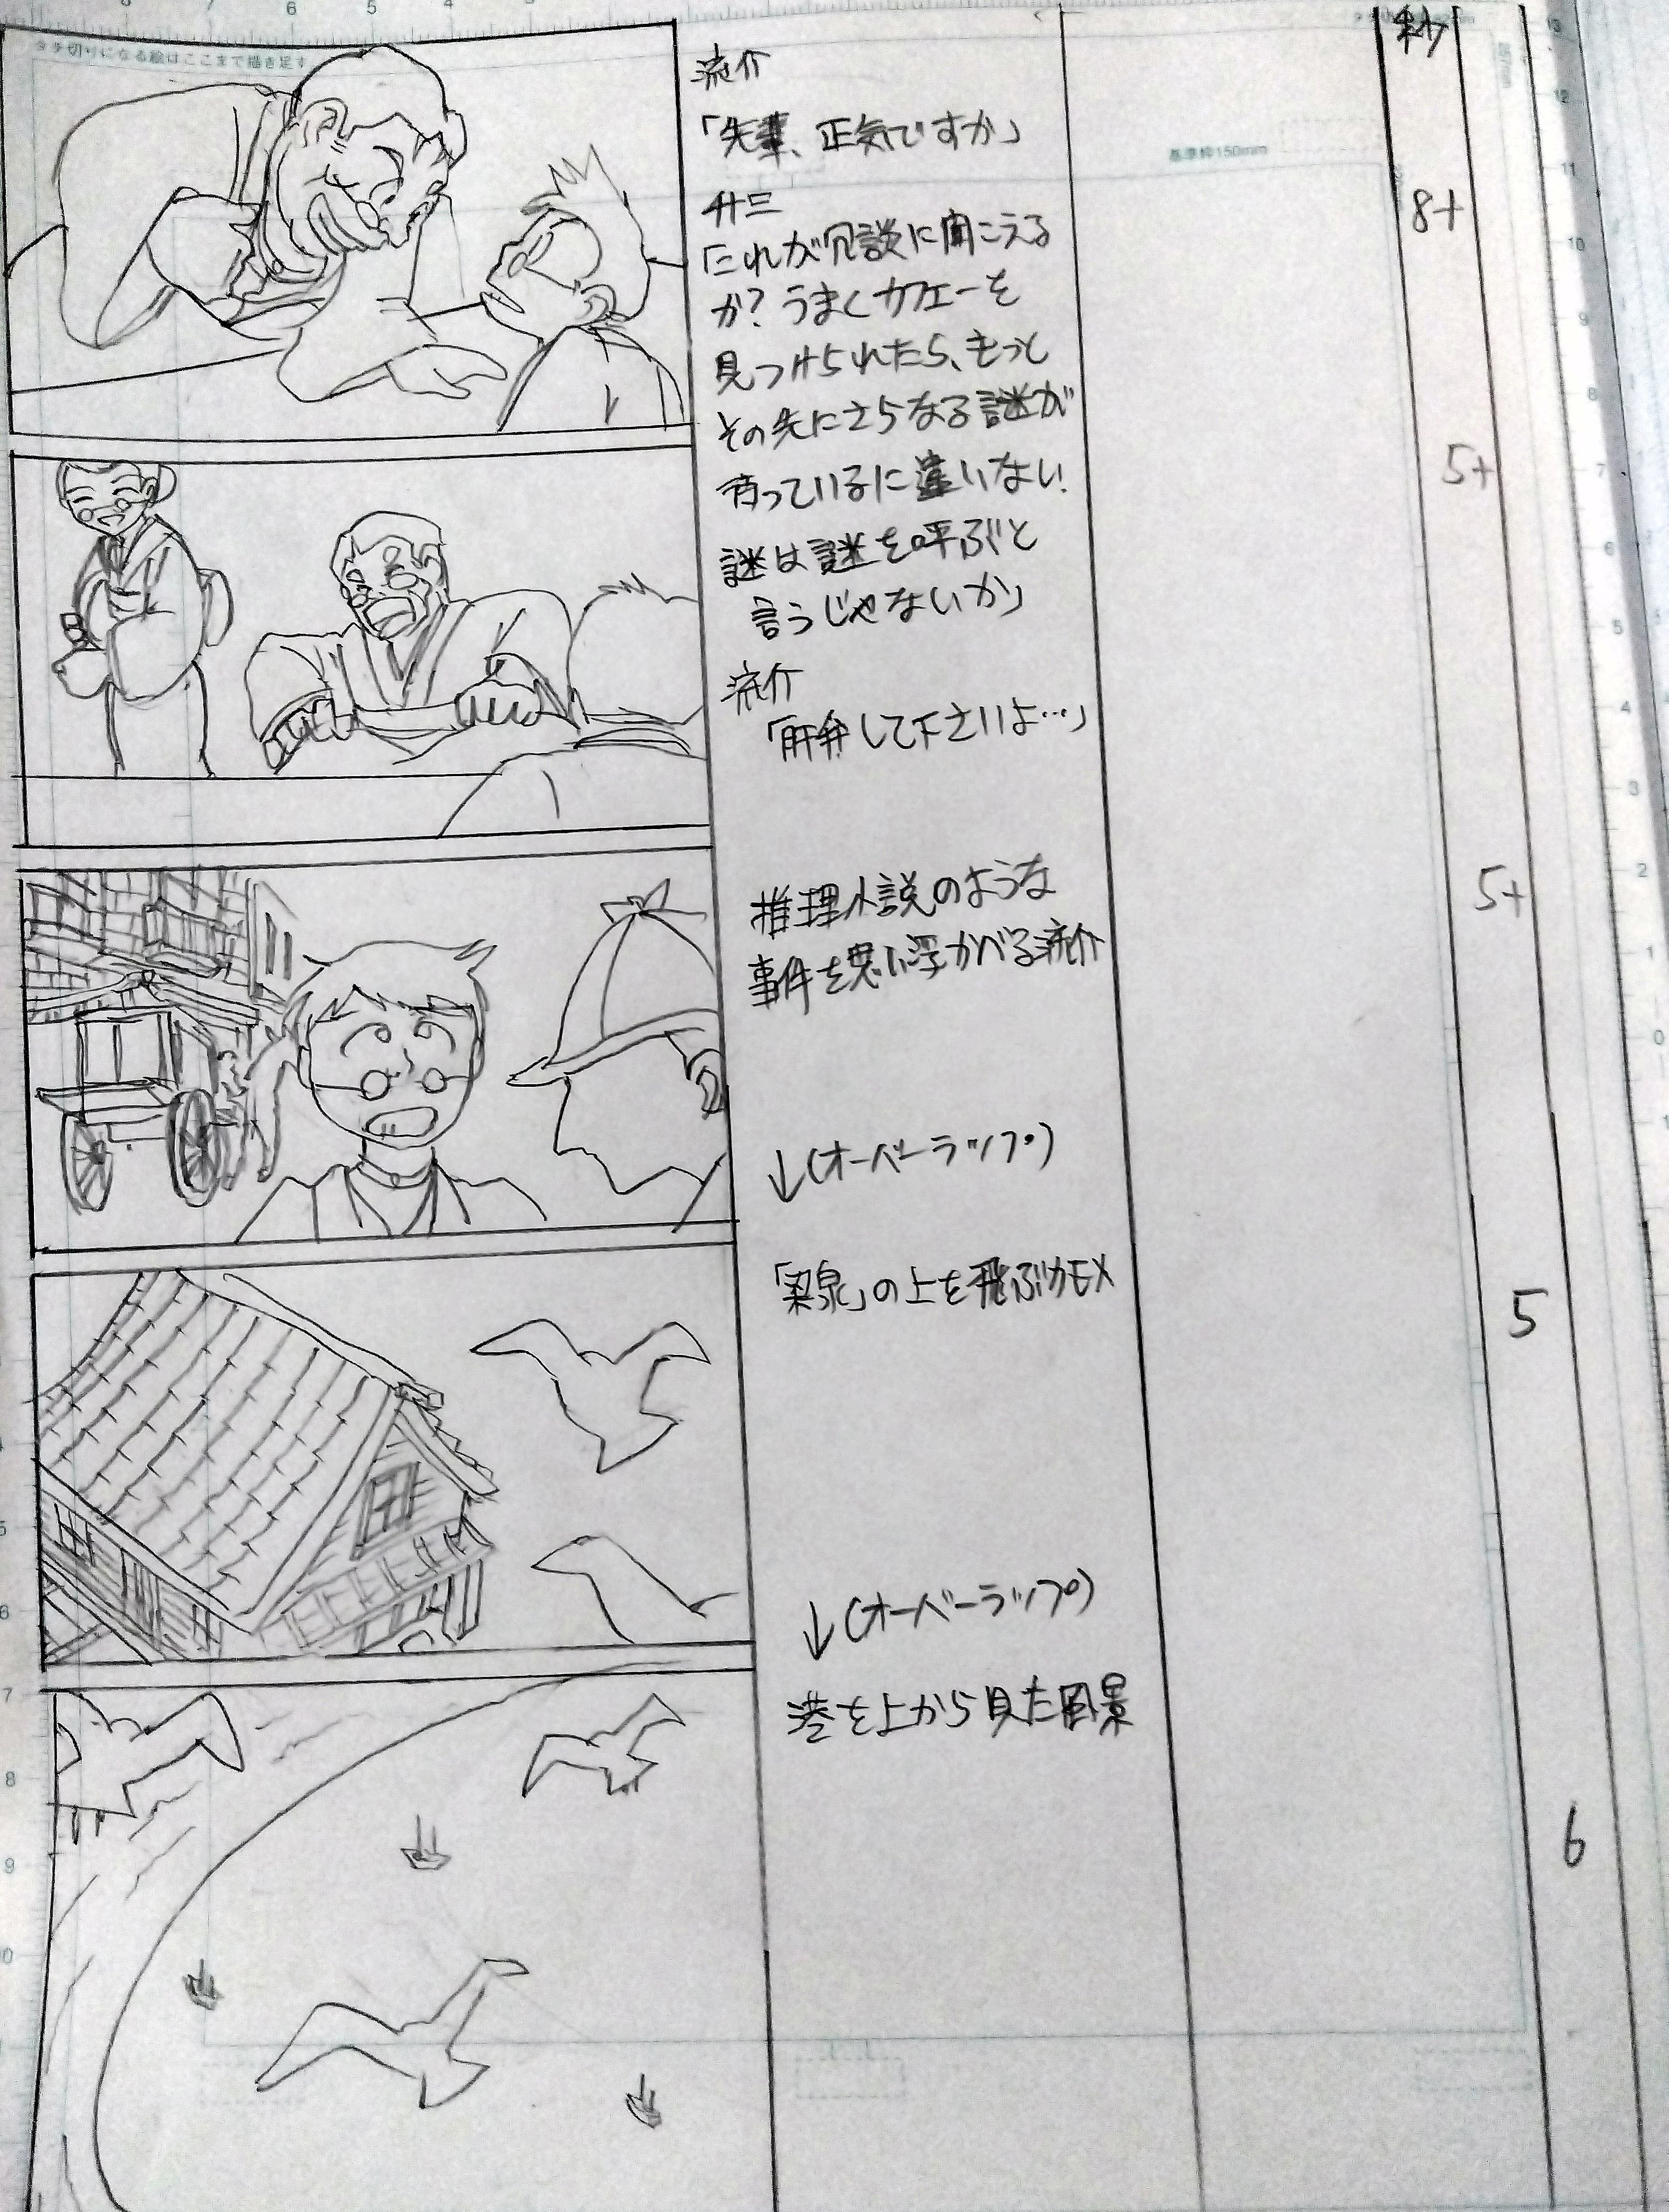 タチ切りになる絵はここまで描き足す
基準枠150mm
秒
流介
「先輩、正気ですか」
廿三
「これが冗談に聞こえる
か?うまくカフェーを
見つけられたら、もっと
その先にさらなる謎が
待っているに違いない!
謎は謎を呼ぶと
言うじゃないか」
8+
流介
「勘弁して下さいよ…」
5+
推理小説のような
事件を思い浮かべる流介
5+
↓(オーバーラップ)
「梁泉」の上を飛ぶカモメ
5
↓(オーバーラップ)
港を上から見た風景
6